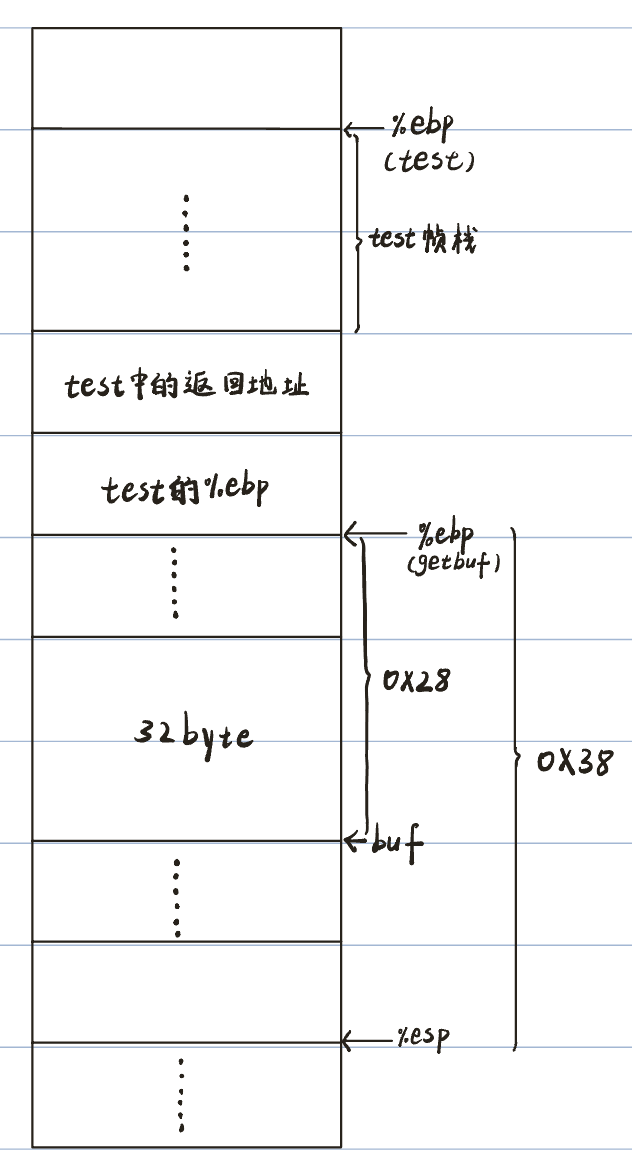 %ebp
(test)
test帧栈
test中的返回地址
test的%ebp
%ebp
(getbuf)
0X28
32byte
0X38
buf
%esp